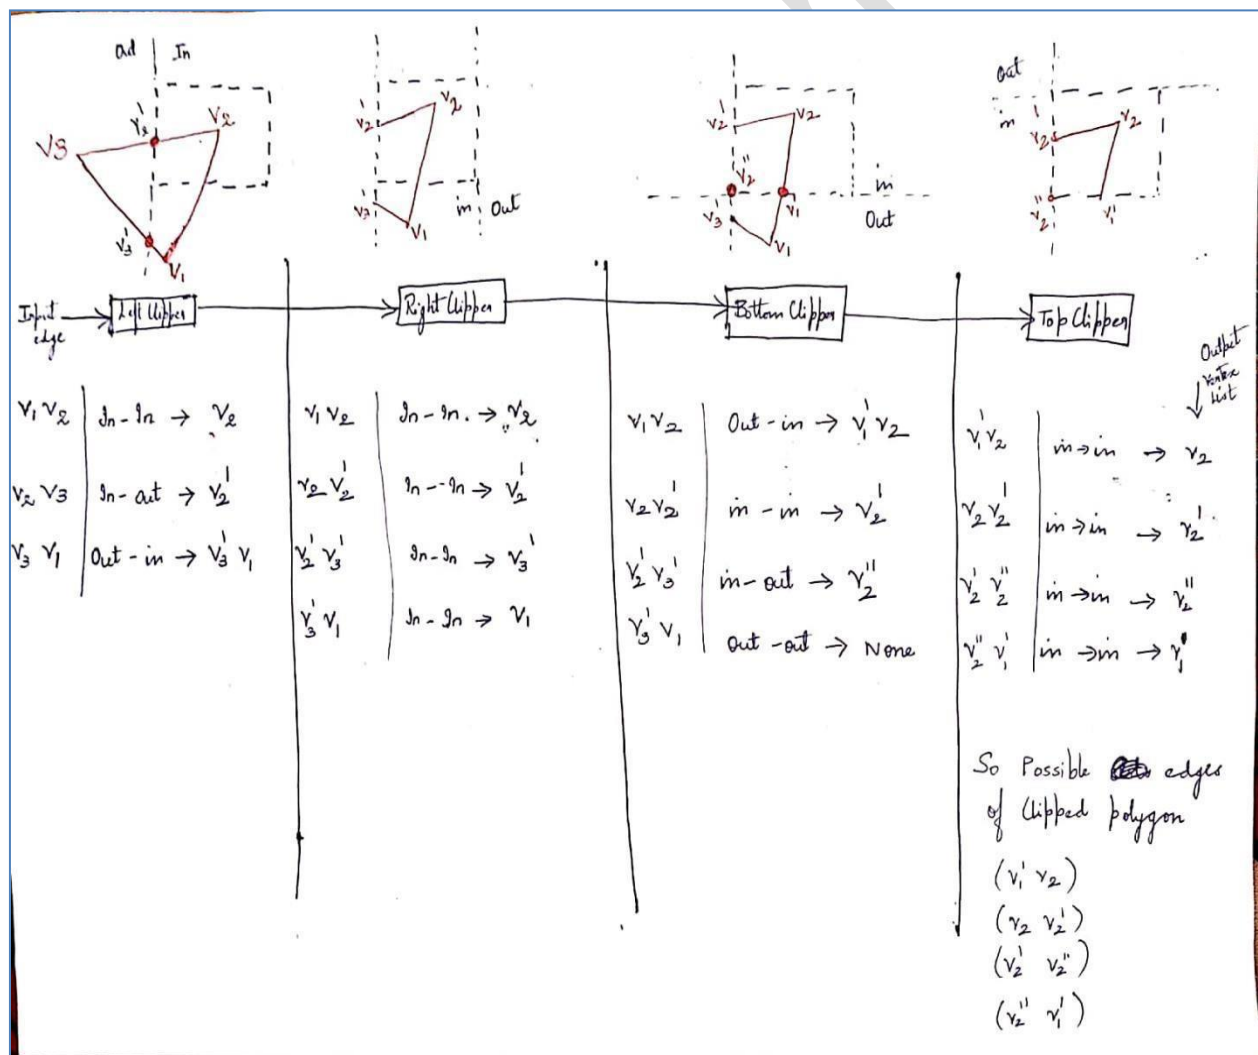 Out | In
V3
V2'
V2
V3'
V1
V2'
V2
V3'
V1
in
Out
V2'
V2
V2''
V3'
V1'
V1
in
Out
Out
in
V2'
V2
V2''
V1''
Input edge → Left Clipper → Right Clipper → Bottom Clipper → Top Clipper
Output
Vertex
List
V1 V2 | In - In → V2
V2 V3 | In - out → V2'
V3 V1 | Out - in → V3' V1
V1 V2 | In - In. → V2
V2 V2' | In - In → V2'
V2' V3' | In - In → V3'
V3' V1 | In - In → V1
V1 V2 | Out - in → V1' V2
V2 V2' | in - in → V2'
V2' V3' | in - out → V2''
V3' V1 | out - out → None
V1' V2 | in → in → V2
V2 V2' | in → in → V2'
V2' V2'' | in → in → V2''
V2'' V1' | in → in → V1'
So Possible edges
of Clipped polygon
(V1' V2)
(V2 V2')
(V2' V2'')
(V2'' V1')